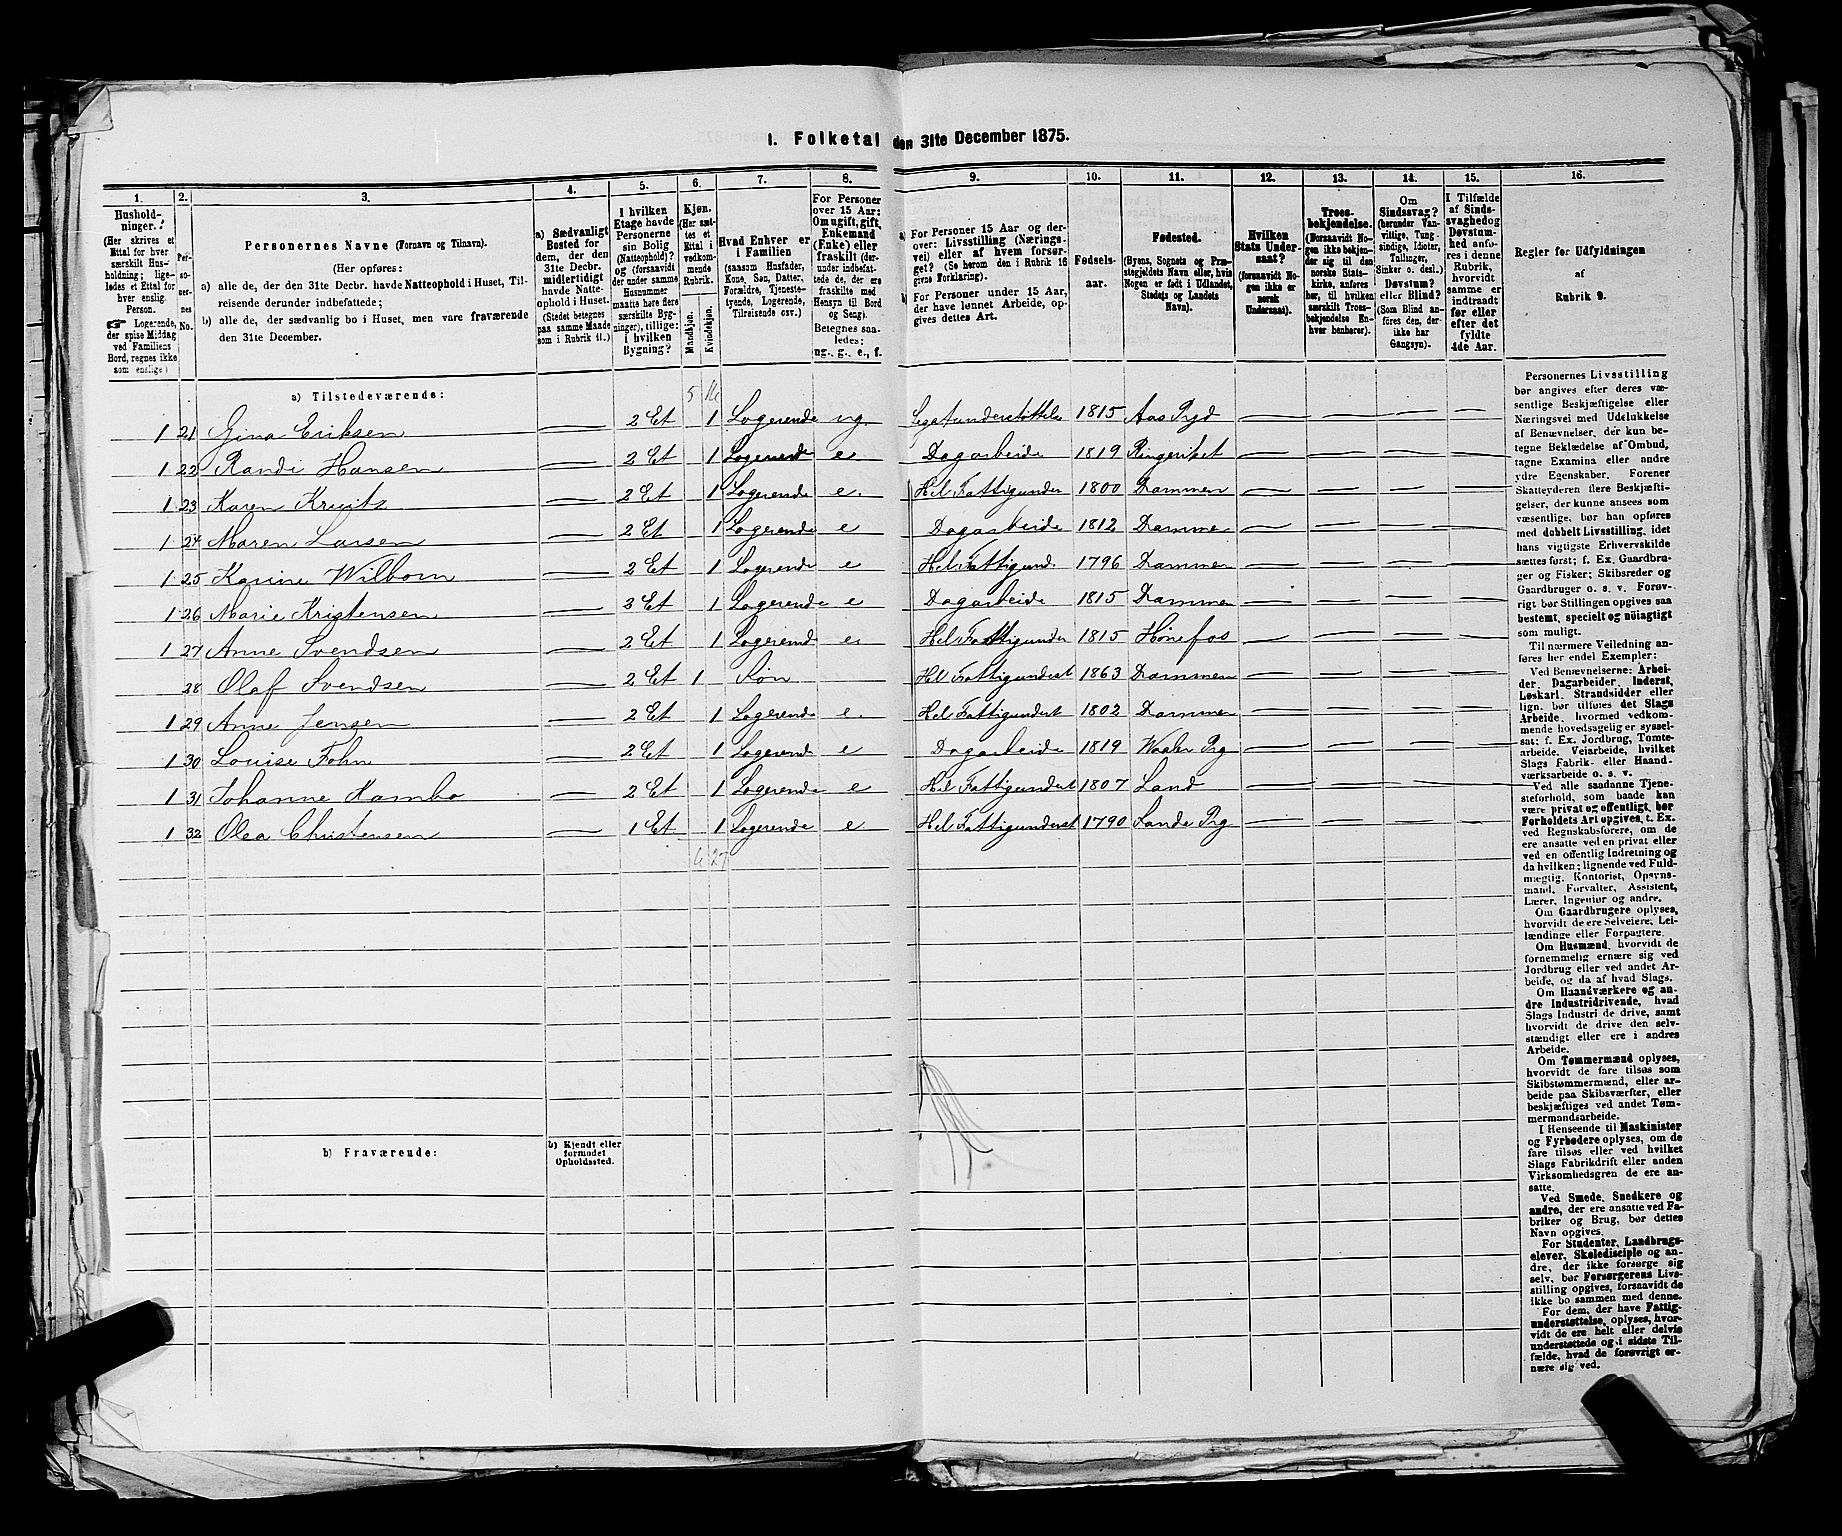 I. Folketal den 31te December 1875.
1. 2. 3. 4. 5. 6. 7. 8. 9. 10. 11. 12. 13. 14. 15. 16.
Hushold-
ninger.
(Her skrives et
Ettal for hver
særskilt Hus-
holdning; lige-
ledes et Ettal for
hver enslig.
Person.
☞ Logerende,
der spise Middag
ved Familiens
Bord, regnes ikke
som enslige)
Per-
so-
ner-
nes
No.
Personernes Navne (Fornavn og Tilnavn).
(Her opføres:
a) alle de, der den 31te Decbr. havde Natteophold i Huset, Til-
reisende derunder indbefattede;
b) alle de, der sædvanlig bo i Huset, men vare fraværende
den 31te December.
a) Sædvanligt
Bosted for
dem, der den
31te Decbr.
midlertidigt
havde Natte-
ophold i Huset.
(Stedet betegnes
paa samme Maade
som i Rubrik 11.)
I hvilken
Etage havde
Personerne
sin Bolig
(Natteophold)?
og (forsaavidt
der under samme
Husnummer
maatte høre flere
særskilte Byg-
ninger), tillige:
i hvilken
Bygning?
Kjøn.
(Her sæt-
tes et
Ettal i
vedkom-
mende
Rubrik.
Mandkjøn.
Kvindekjøn.
Hvad Enhver er
i Familien
(saasom Husfader,
Kone, Søn, Datter,
Forældre, Tjeneste-
tyende, Logerende,
Tilreisende osv.)
For Personer
over 15 Aar:
Om ugift, gift,
Enkemand
(Enke) eller
fraskilt (der-
under indbefat-
tede de, der ere
fraskilte med
Hensyn til Bord
og Seng).
Betegnes saa-
ledes:
ng., g., e., f.
a) For Personer 15 Aar og der-
over: Livsstilling (Nærings-
vei) eller af hvem forsør-
get? (Se herom den i Rubrik 16
givne Forklaring).
b) For Personer under 15 Aar,
der have lønnet Arbeide, op-
gives dettes Art.
Fødsels-
aar.
Fødested.
(Byens, Sognets og Præ-
stegjeldets Navn eller, hvis
Nogen er født i Udlandet,
Stedets og Landets
Navn).
Hvilken
Stats Under-
saat?
(forsaavidt No-
gen ikke er
norsk
Undersaat).
Troes-
bekjendelse.
(Forsaavidt No-
gen ikke bekjen-
der sig til den
norske Stats-
kirke, anføres
her, til hvilken
særskilt Troes-
bekjendelse En-
hver henhører).
Om
Sindssvag?
(herunder Van-
vittige, Tung-
sindige, Idioter,
Tullinger,
Sinker o. desl.)
Døvstum?
eller Blind?
(Som Blind an-
føres den, der-
ikke har
Gangsyn).
I Tilfælde
af Sinds-
svaghed og
Døvstum-
hed anfø-
res i denne
Rubrik,
hvorvidt
samme er
indtraadt
før eller
efter det
fyldte
4de Aar.
Regler for Udfyldningen
af
Rubrik 9.
a) Tilstedeværende: 5 16
1 21 Gina Eriksen — 2 Et 1 Logerende ug. Legatunderstøttelse 1815 Aas Pgd — — — —
1 22 Randi Hansen — 2 Et 1 Logerende e Dagarbeide 1819 Ringeriket — — — —
1 23 Karen — 2 Et 1 Logerende e. Hel Fattigunder 1800 Drammen — — — —
1 24 Maren Larsen — 2 Et 1 Logerende e Dagarbeide 1812 Drammen — — — —
1 25 Karine Wilborn — 2 Et 1 Logerende e Hel Fattigund. 1796 Drammen — — — —
1 26 Marie Kristensen — 2 Et 1 Logerende e Dagarbeide 1815 Drammen — — — —
1 27 Anne Svendsen — 2 Et 1 Logerend e. Hel Fattigunder 1815 Hønefos — — — —
28 Olaf Svendsen — 2 Et 1 Søn Hel Fattigunderst 1863 Drammen — — — —
1 29 Anne Jensen — 2 Et 1 Logerende e. Hel Fattigunderst 1802 Drammen — — — —
1 30 Louise Fohn — 2 Et 1 Logerend e Dagarbeide 1819 Waaler Pg — — — —
1 31 Johanne Kambo — 2 Et 1 Logerende e Hel Fattigunderst 1807 Land — — — —
1 32 Olea Christensen — 1 Et 1 Logerende e Hel Fattigunderst 1790 Sande Pg — — — —
6 27
b) Fraværende:
b) Kjendt eller
formodet
Opholdssted.
Personernes Livsstilling
bør angives efter deres væ-
sentlige Beskjæftigelse eller
Næringsvei med Udelukkelse
af Benævnelser, der kun be-
tegne Beklædelse af Ombud,
tagne Examina eller andre
ydre Egenskaber. Forener
Skatteyderen flere Beskjæfti-
gelser, der kunne ansees som
væsentlige, bør han opføres
med dobbelt Livsstilling, idet
hans vigtigste Erhvervskilde
sættes først; f. Ex. Gaardbru-
ger og Fisker; Skibsreder og
Gaardbruger o. s. v. Forøv-
rigt bør Stillingen opgives saa
bestemt, specielt og nøiagtigt
som muligt.
Til nærmere Veiledning an-
føres her endel Exempler:
Ved Benævnelserne: Arbei-
der, Dagarbeider, Inderst,
Løskarl, Strandsidder eller
lign. bør tilføies det Slags
Arbeide, hvormed vedkom-
mende hovedsagelig er syssel-
sat; f. Ex. Jordbrug, Tomte-
arbeide, Veiarbeide, hvilket
Slags Fabrik- eller Haand-
værksarbeide o. s. v.
Ved alle saadanne Tjene-
steforhold, som baade kan
være privat og offentligt, bør
Forholdets Art opgives, t. Ex.
ved Regnskabsførere, om de
ere ansatte ved en privat eller
ved en offentlig Indretning og
da hvilken; lignende ved Fuld-
mægtig, Kontorist, Opsyns-
mand, Forvalter, Assistent,
Lærer, Ingeniør og andre.
Om Gaardbrugere oplyses,
hvorvidt de ere Selveiere, Lei-
lændinge eller Forpagtere.
Om Husmænd, hvorvidt de
fornemmelig ernære sig ved
Jordbrug eller ved andet Ar-
beide, og da af hvad Slags.
Om Haandværkere og an-
dre Industridrivende, hvad
Slags Industri de drive, samt
hvorvidt de drive den selv-
stændigt eller ere i andres
Arbeide.
Om Tømmermænd oplyses,
hvorvidt de fare tilsøs som
Skibstømmermænd, eller ar-
beide paa Skibsværfter, eller
beskjæftiges ved andet Tøm-
mermandsarbeide.
I Henseende til Maskinister
og Fyrbødere oplyses, om de
fare tilsøs eller ved hvilket
Slags Fabrikdrift eller anden
Virksomhedsgren de ere an-
satte.
Ved Smede, Snedkere og
andre, der ere ansatte ved Fa-
briker og Brug, bør dettes
Navn opgives.
For Studenter, Landbrugs-
elever, Skoledisciple og an-
dre, der ikke forsørge sig
selv, bør Forsørgerens Livs-
stilling opgives, forsaavidt de
ikke bo sammen med denne.
For dem, der have Fattig-
understøttelse, oplyses, hvor-
vidt de ere helt eller delvis
understøttede og i sidste Til-
fælde, hvad de forøvrigt er-
nære sig ved.